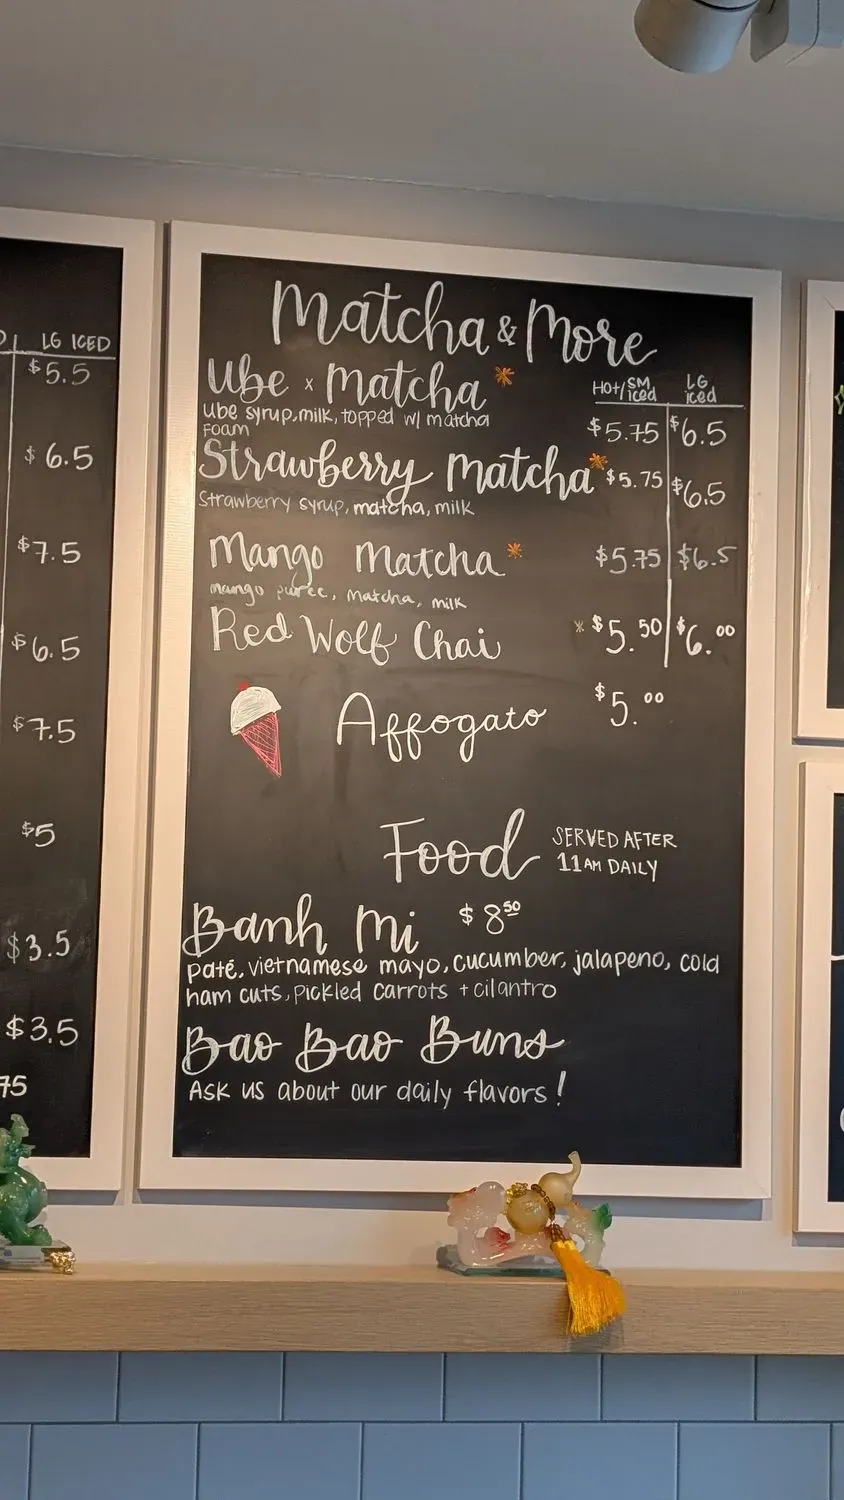 LG ICED
$5.5
$6.5
$7.5
$6.5
$7.5
$5
$3.5
$3.5
75
Matcha & More
HOT/SM iced LG iced
Ube x Matcha * $5.75 $6.5
Ube syrup, milk, topped w/ matcha
foam
Strawberry Matcha * $5.75 $6.5
Strawberry syrup, matcha, milk
Mango Matcha * $5.75 $6.5
mango puree, matcha, milk
Red Wolf Chai * $5.50 $6.00
Affogato $5.00
Food SERVED AFTER
11AM DAILY
Banh Mi $8.50
paté, vietnamese mayo, cucumber, jalapeno, cold
ham cuts, pickled carrots + cilantro
Bao Bao Buns
Ask us about our daily flavors!